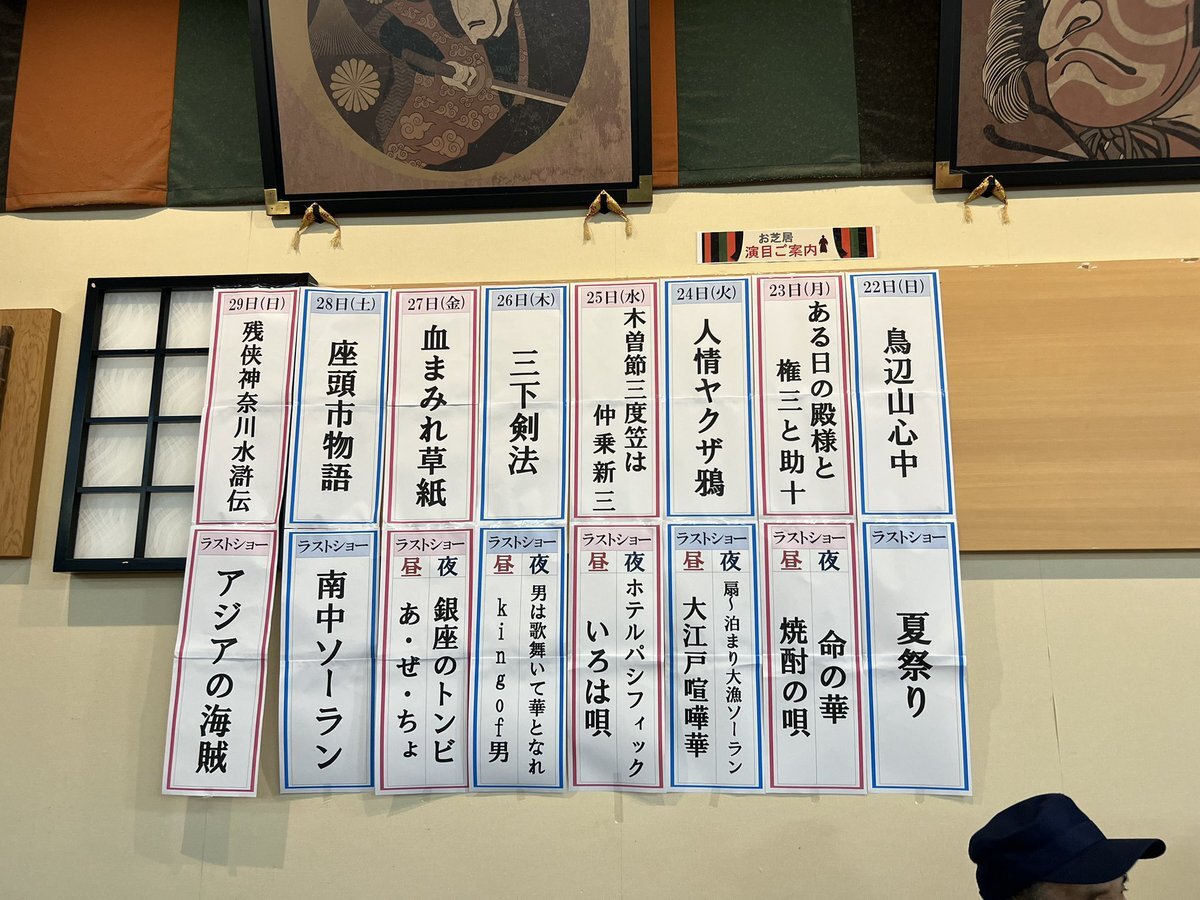 お芝居
演目ご案内
22日(日)
鳥辺山心中
23日(月)
ある日の殿様と
権三と助十
24日(火)
人情ヤクザ鴉
25日(水)
木曽節三度笠は
仲乗新三
26日(木)
三下剣法
27日(金)
血まみれ草紙
28日(土)
座頭市物語
29日(日)
残侠神奈川水滸伝
ラストショー
夏祭り
ラストショー
夜
命の華
昼
焼酎の唄
ラストショー
夜
扇〜泊まり大漁ソーラン
昼
大江戸喧嘩華
ラストショー
夜
ホテルパシフィック
昼
いろは唄
ラストショー
夜
男は歌舞いて華となれ
昼
kingof男
ラストショー
夜
銀座のトンビ
昼
あ・ぜ・ちょ
ラストショー
南中ソーラン
ラストショー
アジアの海賊